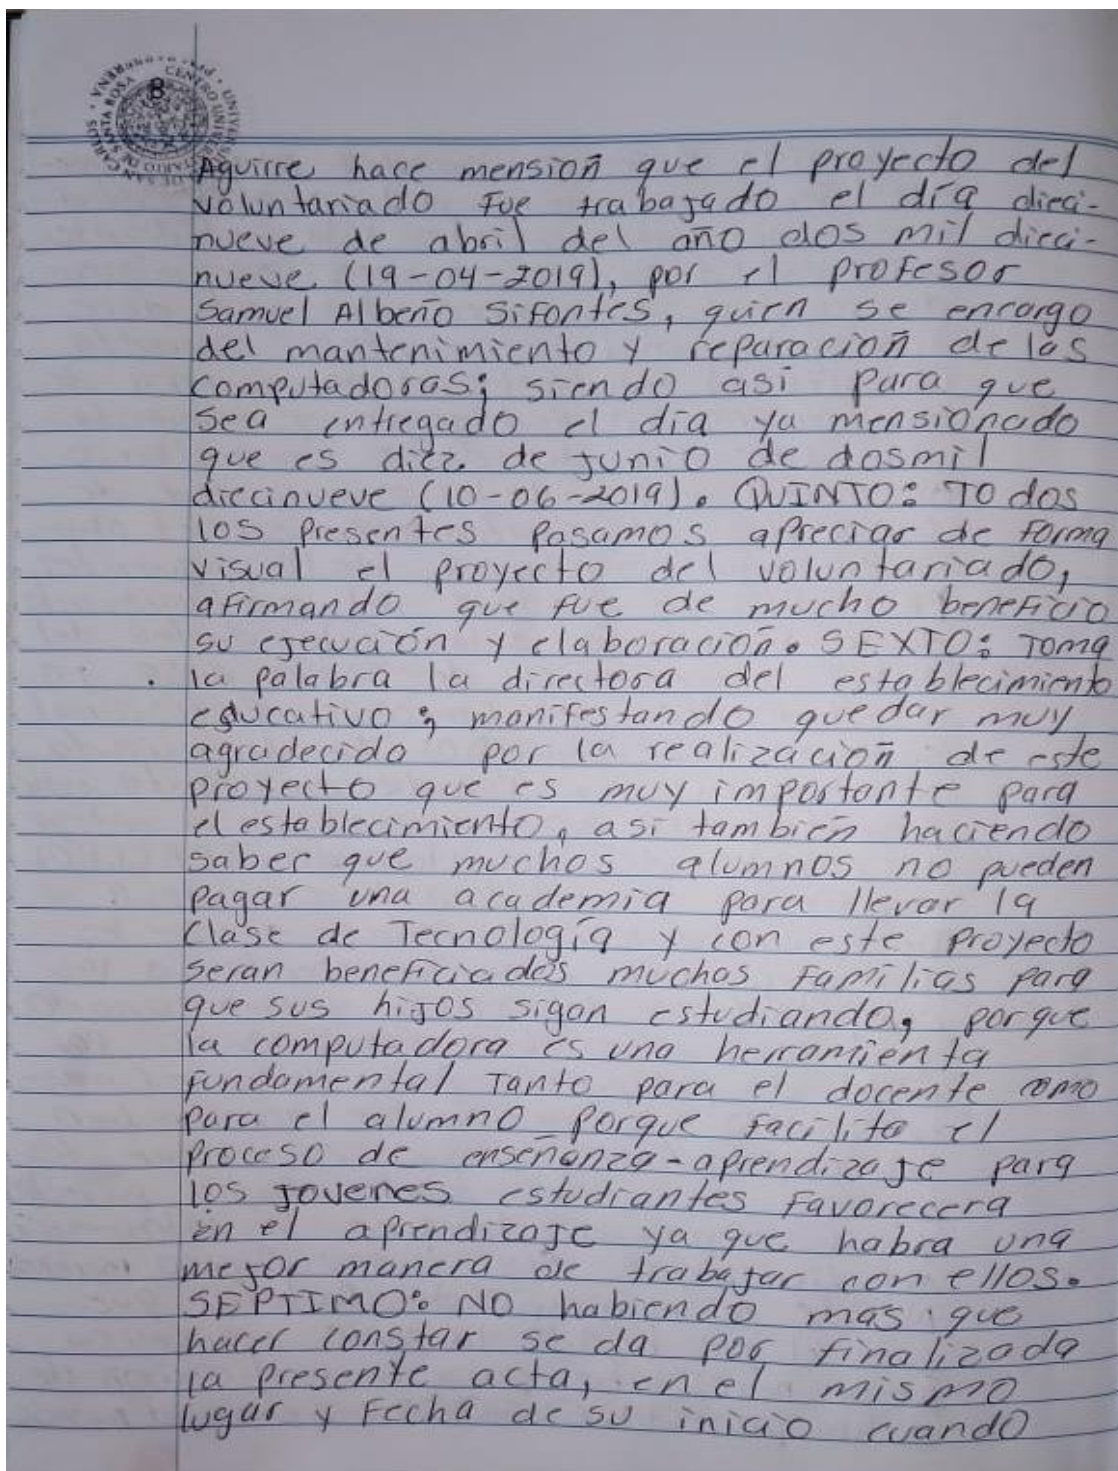 8
Aguirre hace mensión que el proyecto del
voluntariado fue trabajado el día dieci-
nueve de abril del año dos mil dieci-
nueve (19-04-2019), por el profesor
Samuel Albeño Sifontes, quien se encargo
del mantenimiento y reparación de las
computadoras; siendo asi para que
sea entregado el día ya mensionado
que es diez de junio de dosmil
diecinueve (10-06-2019). QUINTO: Todos
los presentes pasamos apreciar de forma
visual el proyecto del voluntariado,
afirmando que fue de mucho beneficio
su ejecución y elaboración. SEXTO: Toma
la palabra la directora del establecimiento
educativo; manifestando quedar muy
agradecida por la realización de este
proyecto que es muy importante para
el establecimiento, asi también haciendo
saber que muchos alumnos no pueden
pagar una academia para llevar la
clase de Tecnología y con este proyecto
seran beneficiados muchas familias para
que sus hijos sigan estudiando, porque
la computadora es una herramienta
fundamental Tanto para el docente como
para el alumno porque facilita el
proceso de enseñanza-aprendizaje para
los jovenes estudiantes favorecera
en el aprendizaje ya que habra una
mejor manera de trabajar con ellos.
SEPTIMO: No habiendo mas que
hacer constar se da por finalizada
la presente acta, en el mismo
lugar y fecha de su inicio cuando